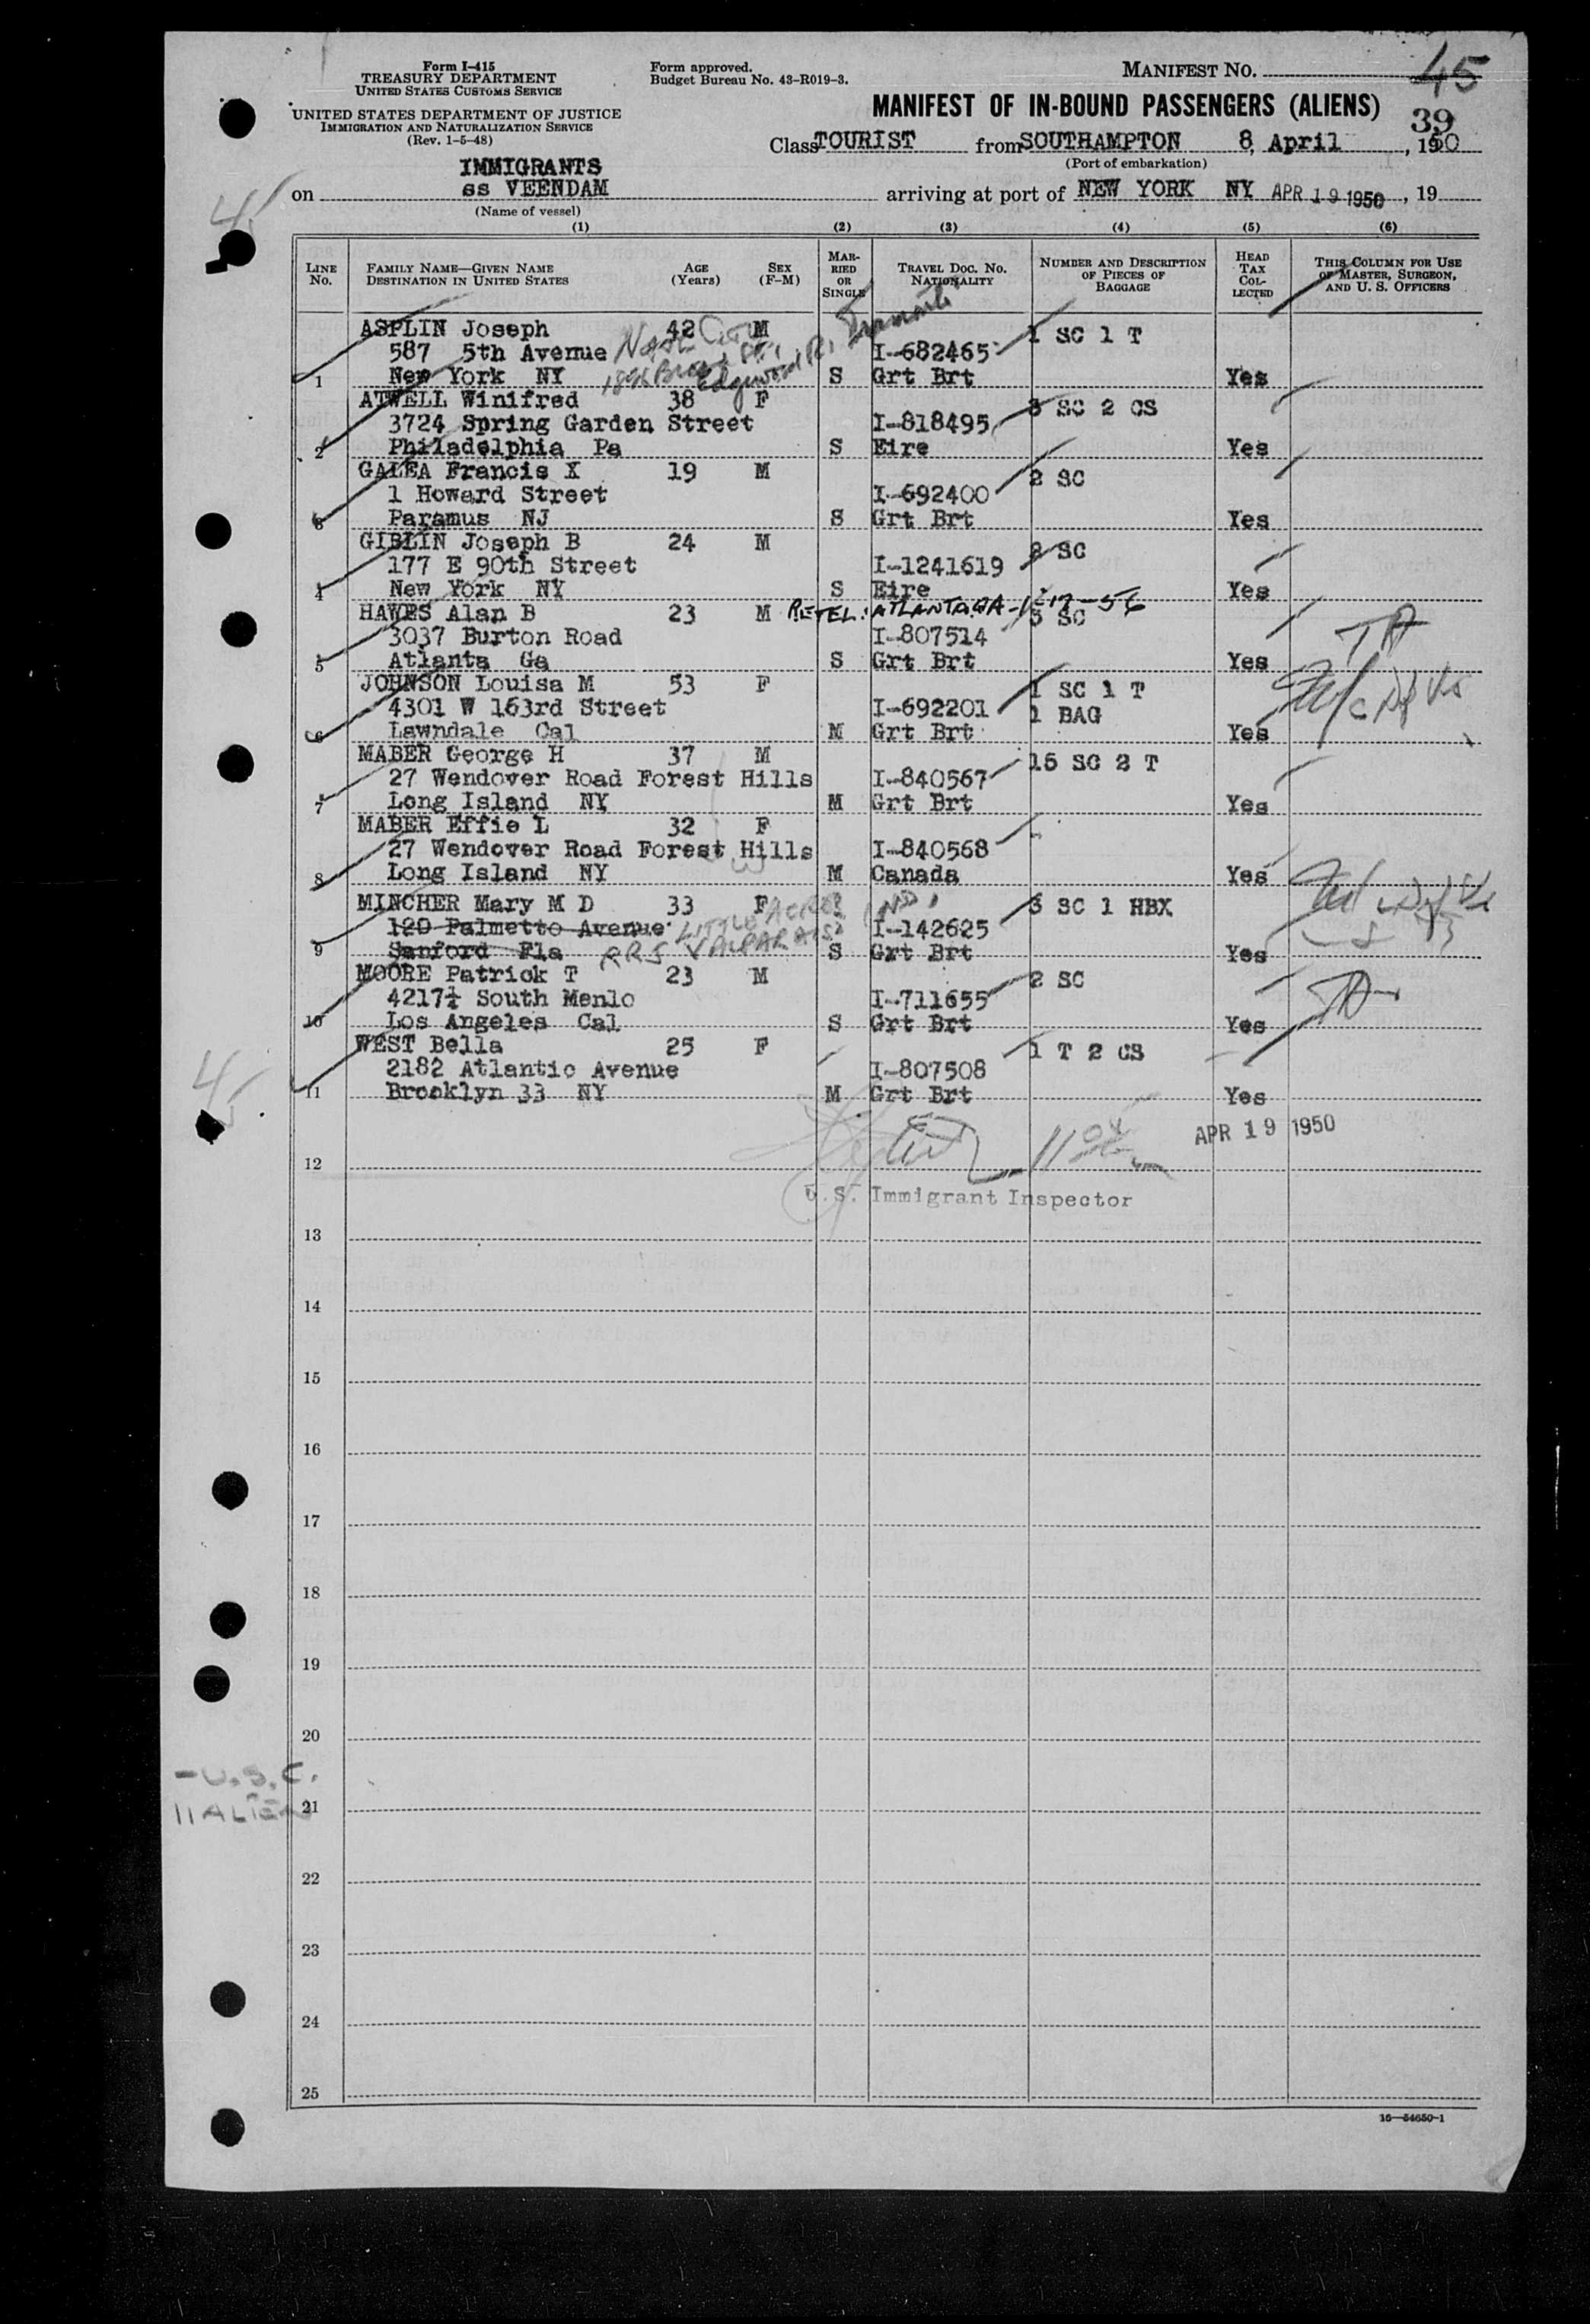 Form I-415
TREASURY DEPARTMENT
UNITED STATES CUSTOMS SERVICE
UNITED STATES DEPARTMENT OF JUSTICE
IMMIGRATION AND NATURALIZATION SERVICE
(Rev. 1-5-48)
Form approved.
Budget Bureau No. 43-R019-3.
MANIFEST NO. 45
MANIFEST OF IN-BOUND PASSENGERS (ALIENS)
39
Class TOURIST from SOUTHAMPTON 8, April, 1950
(Port of embarkation)
IMMIGRANTS
on ss VEENDAM arriving at port of NEW YORK NY APR 19 1950, 19
(Name of vessel)
(1) (2) (3) (4) (5) (6)
LINE NO. FAMILY NAME—GIVEN NAME DESTINATION IN UNITED STATES AGE (Years) SEX (F-M) MARRIED OR SINGLE TRAVEL DOC. NO. NATIONALITY NUMBER AND DESCRIPTION OF PIECES OF BAGGAGE HEAD TAX COLLECTED THIS COLUMN FOR USE OF MASTER, SURGEON, AND U. S. OFFICERS
ASPLIN Joseph 42 M 1 SC 1 T
587 5th Avenue I-682465
1 New York NY S Grt Brt Yes
Edgewood R.I.
ATWELL Winifred 38 F 3 SC 2 CS
3724 Spring Garden Street I-818495
2 Philadelphia Pa S Eire Yes
GALEA Francis X 19 M 2 SC
1 Howard Street I-692400
3 Paramus NJ S Grt Brt Yes
GIBLIN Joseph B 24 M 2 SC
177 E 90th Street I-1241619
4 New York NY S Eire Yes
HAWES Alan B 23 M RE TEL: ATLANTA GA-1-17-56
3037 Burton Road I-807514 3 SC
5 Atlanta Ga S Grt Brt Yes
JOHNSON Louisa M 53 F 1 SC 1 T
4301 W 163rd Street I-692201 1 BAG
6 Lawndale Cal M Grt Brt Yes
MABER George H 37 M 15 SC 2 T
27 Wendover Road Forest Hills I-840567
7 Long Island NY M Grt Brt Yes
MABER Effie L 32 F -
27 Wendover Road Forest Hills I-840568
8 Long Island NY M Canada Yes
MINCHER Mary M D 33 F 3 SC 1 HBX
120 Palmetto Avenue LITTLE ACRES IND. I-142625
9 Sanford Fla RR5 VALPARAISO S Grt Brt Yes
MOORE Patrick T 23 M 2 SC
4217¼ South Menlo I-711655
10 Los Angeles Cal S Grt Brt Yes
WEST Bella 25 F 1 T 2 CS
2182 Atlantic Avenue I-807508
11 Brooklyn 33 NY M Grt Brt Yes
APR 19 1950
12
U.S. Immigrant Inspector
13
14
15
16
17
18
19
20
- U.S.C.
11 ALIEN
21
22
23
24
25
16—54650-1